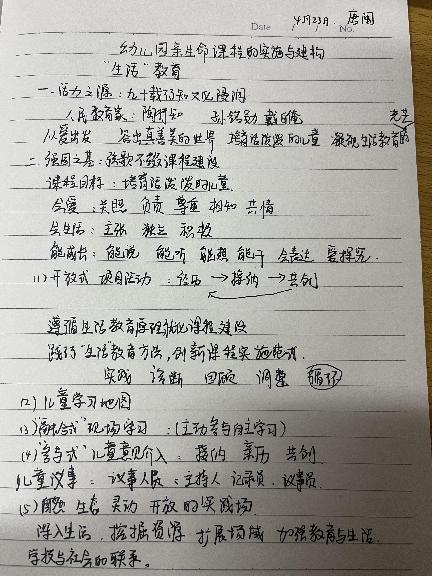 Date 4月23日. No. 唐闻
幼儿园亲生命课程的实施与建构
"生活"教育
一.活力之源:九十载行知文化浸润
人民教育家:陶行知 孙铭勋 戴自俺
从爱出发 奔出真善美的世界 培育活泼泼的儿童 凝视生活教育的光芒
二.强园之基:弦歌不辍课程建设
课程目标:培育活泼泼的儿童
会爱:关照 负责 尊重 相知 共情
会生活:主张 独立 积极
能成长:能说 能听 能想 能干 会表达 爱探究.
(1)开放式项目活动:经历→接纳→共创
遵循生活教育原理优化课程建设
践行"生活"教育方法,创新课程实施模式.
实践 诊断 回顾 调整 循环
(2)儿童学习地图
(3)"融合式"现场学习:(主动参与自主学习)
(4)"参与式"儿童意见介入:接纳 亲历 共创.
儿童议事:议事人员:主持人 记录员.议事员.
(5) 生态 灵动 开放的实践场.
深入生活.挖掘资源 扩展场域 加强教育与生活.
学校与社会的联系。